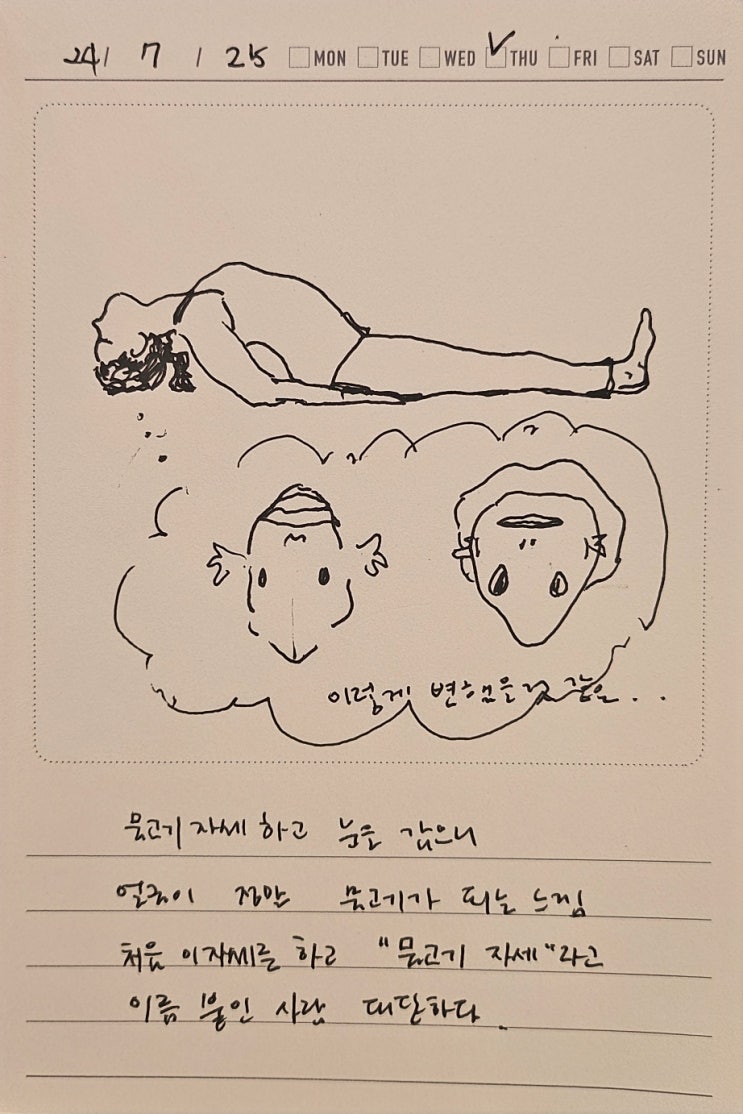 24/ 7 / 25 MON TUE WED THU FRI SAT SUN
이렇게 변했을것 같은...
물고기 자세 하고 눈을 감으니
얼굴이 정말 물고기가 되는 느낌
처음 이자세를 하고 "물고기 자세"라고
이름 붙인 사람 대단하다.